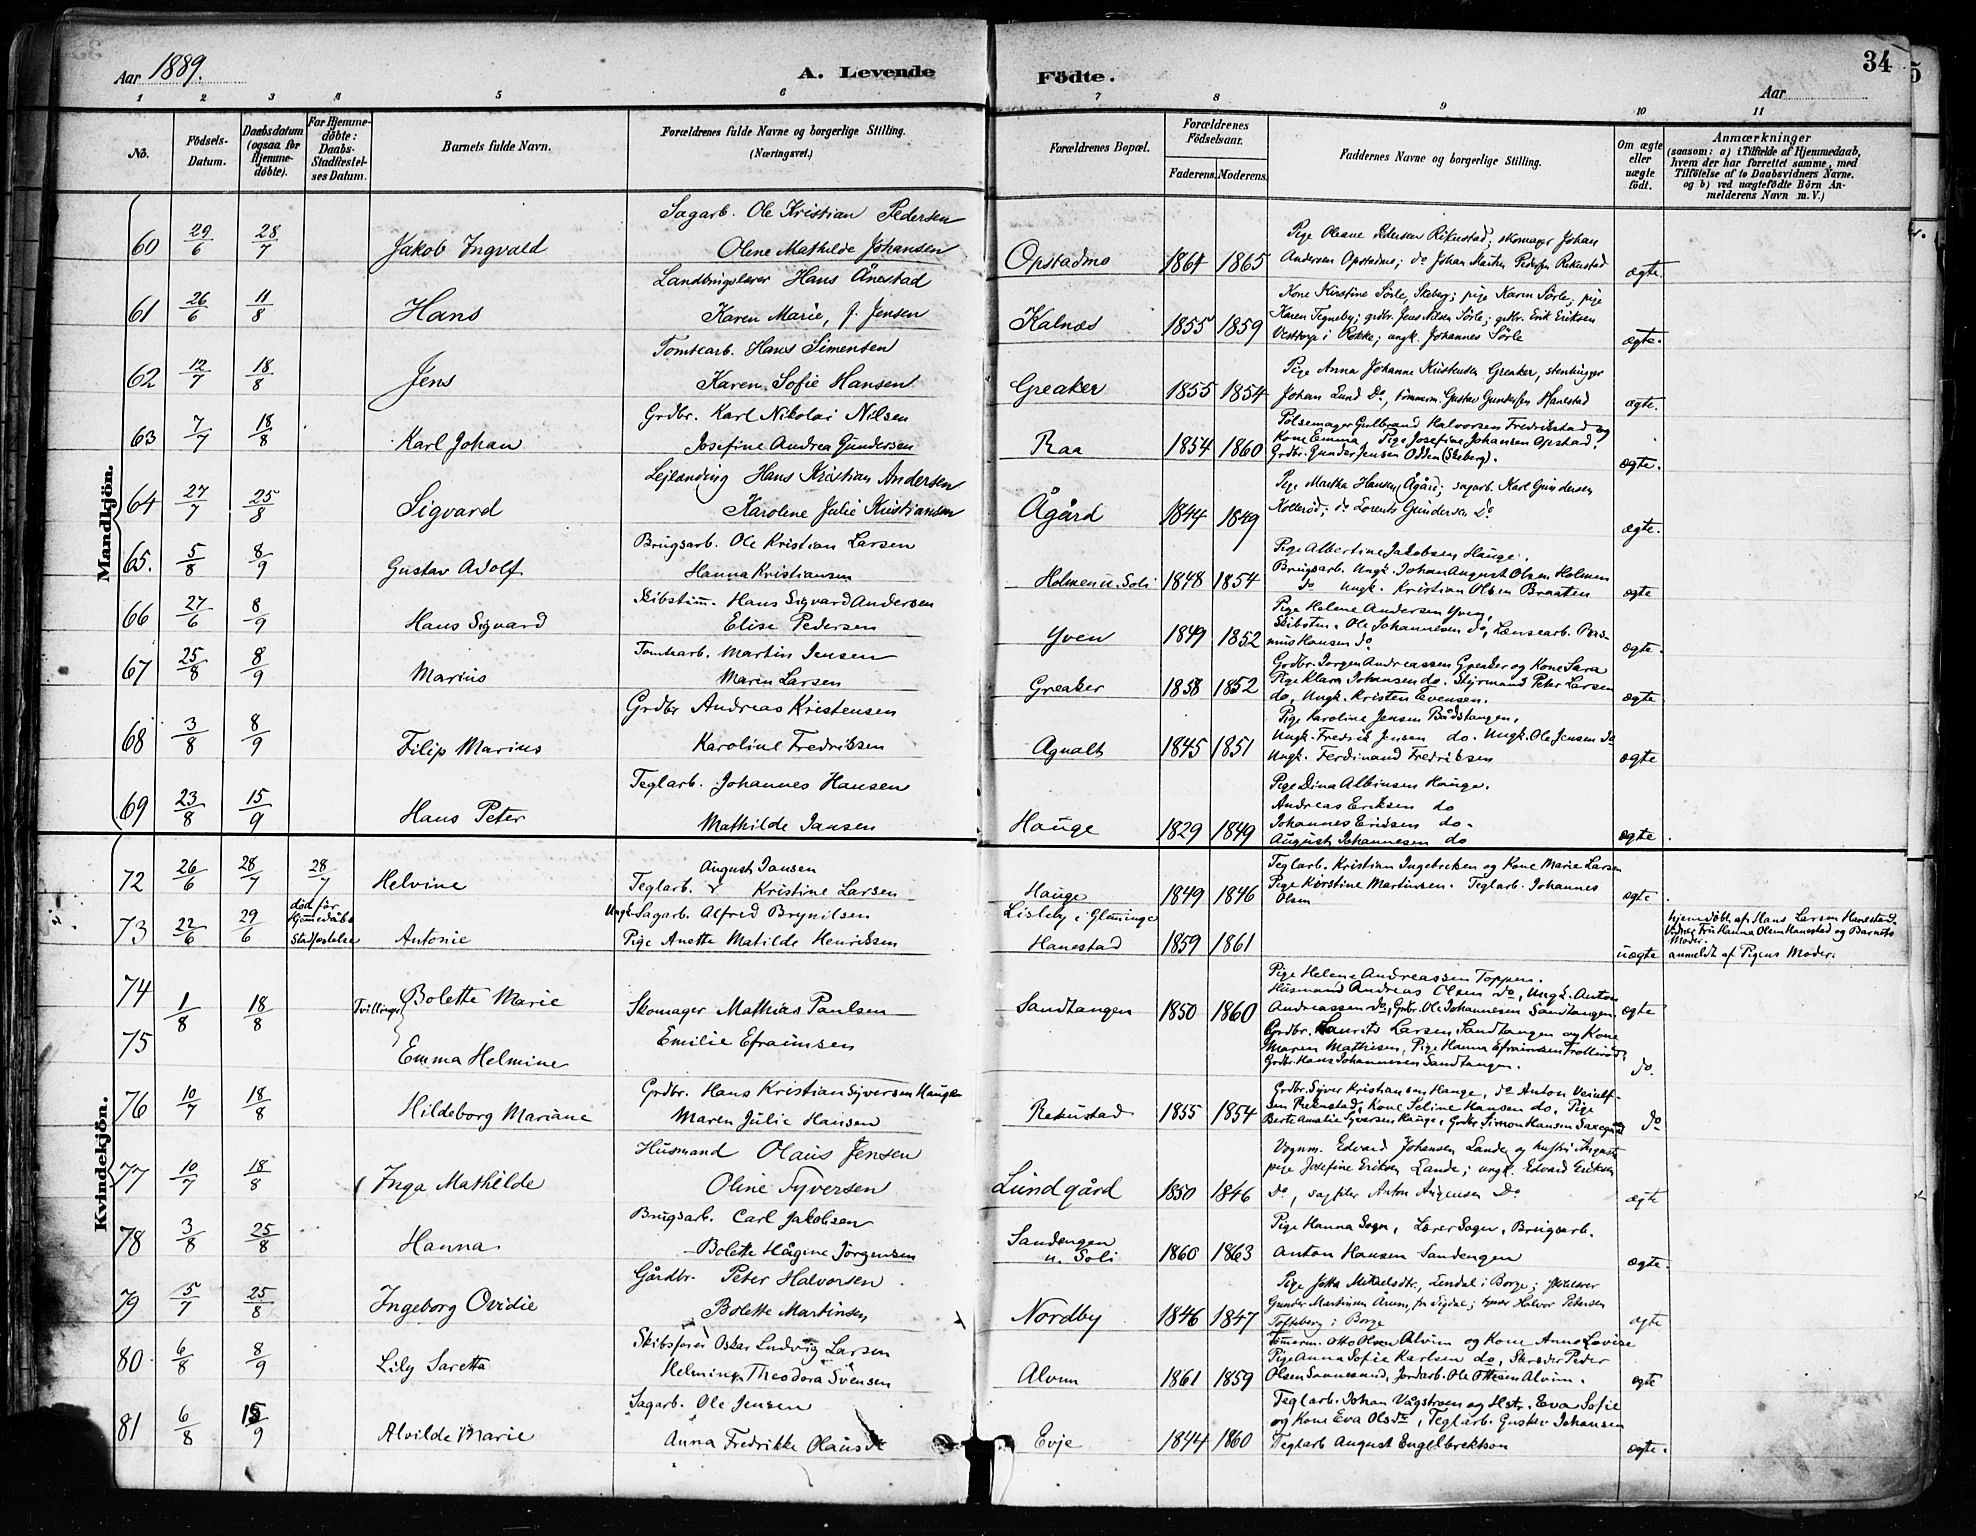 Aar 1889.
A. Levende Födte.
34
Aar
1 2 3 4 5 6 7 8 9 10 11
No.
Födsels-Datum.
Daabsdatum (ogsaa for Hjemme-döbte).
For Hjemme-döbte: Daabs-Stadfæstel-ses Datum.
Barnets fulde Navn.
Forældrenes fulde Navne og borgerlige Stilling. (Næringsvei.)
Forældrenes Bopæl.
Forældrenes Födselsaar.
Faderens. Moderens.
Faddernes Navne og borgerlige Stilling.
Om ægte eller uægte födt.
Anmærkninger
(saasom: a) i Tilfælde af Hjemmedaab, hvem der har forrettet samme, med Tilföielse af to Daabsvidners Navne. og b) ved uægtefödte Börn An-melderens Navn m. V.)
Mandkjön.
60 29/6 28/7 Jakob Ingvald
Sagarb. Ole Kristian Pedersen
Oline Mathilde Johansen
Opstadmo 1864 1865
Pige Oleane Pedersen Rekustad; skomager Johan
Andersen Opstadmo; do Johan Martin Pedersen Rekustad
ægte.
61 26/6 11/8 Hans
Landbrugslærer Hans Ånestad
Karen Marie, f. Jensen
Kalnæs 1855 1859
Kone Kirstine Sörle, Skeberg; pige Karen Sörle; pige
Karen Tegneby; grdbr. Jens Nilsen Sörle; grdbr. Erik Eriksen
Vesttorp i Rokke; ungk. Johannes Sörle
ægte.
62 12/7 18/8 Jens
Tomtearb. Hans Simensen
Karen Sofie Hansen
Greaker 1855 1854
Pige Anna Johanne Kristensen Greaker, stenhugger
Johan Lund Do, tömmerm. Gustav Gundersen Hanestad
ægte.
63 7/7 18/8 Karl Johan
Grdbr. Karl Nikolai Nilsen
Josefine Andrea Gundersen
Raa 1854 1860
Pölsemager Gulbrand Halvorsen Fredrikstad og
Kone Emma. Pige Josefine Johansen Opstad.
Grdbr. Gunder Jensen Odden (Skeberg).
ægte.
64 27/7 25/8 Sigvard
Lejlending Hans Kristian Andersen
Karoline Julie Kristiansen
Ågård 1844 1849
Pige Martha Hansen Ågård; sagarb. Karl Gundersen
Kolleröd; do Lorents Gundersen Do
ægte.
65. 5/8 8/9 Gustav Adolf
Brugsarb. Ole Kristian Larsen
Hanna Kristiansen
Holmen u. Soli 1848 1854
Pige Albertine Jakobsen Hauge.
Brugsarb. Ungk. Johan August Olsen Holmen
do Ungk. Kristian Olsen Braaten
ægte
66 27/6 8/9 Hans Sigvard
Skibstöm. Hans Sigvard Andersen
Elise Pedersen
Yven 1849 1852
Pige Helene Andersen Yven,
Skibstöm. Ole Johannesen do, Lænsearb. Ras-
mus Hansen do
ægte.
67 25/8 8/9 Marius
Tomtearb. Martin Jensen
Maren Larsen
Greaker 1858 1852
Grdbr. Jörgen Andreassen Greaker og Kone Sara
Pige Klara Johansen do. Styrmand Peter Larsen
do, Ungk. Kristen Evensen.
ægte
68 3/8 8/9 Filip Marius
Grdbr Andreas Kristensen
Karoline Fredriksen
Agnalt 1845 1851
Pige Karoline Jensen Bådstangen,
Ungk. Fredrik Jensen do. Ungk. Ole Jensen do
Ungk. Ferdinand Fredriksen
ægte
69 23/8 15/9 Hans Peter
Teglarb. Johannes Hansen
Mathilde Jansen
Hauge 1829 1849
Pige Dina Albinsen Hauge.
Andreas Eriksen do
Johannes Eriksen do.
August Johannesen do
ægte
Kvindekjön.
72 26/6 28/7 28/7 Helvine
August Jansen
Teglarb. Kristine Larsen
Hauge 1849 1846
Teglarb. Kristian Ingebretsen og Kone Marie Larsen
Pige Kirstine Martinsen. Teglarb. Johannes
Olsen
ægte
73 22/6 29/6 död för Hjemmedåbs Stadfæstelse Antonie
Ungk. Sagarb. Alfred Brynilsen
Pige Anette Matilde Henriksen
Lisleby i Glemminge
Hanestad 1859 1861
uægte
hjemdöbt af Hans Larsen Hanestad.
Vidner Fru Hanna Olsen Hanestad og Barnets
Moder.
anmeldt af Pigens Moder.
74 75 1/8 18/8 Tvillinger
Bolette Marie
Emma Helmine
Skomager Mathias Paulsen
Emilie Efraimsen
Sandtangen 1850 1860
Pige Helene Andreassen Toppen.
Husmand Andreas Olsen do, Ungk. Anton
Andreassen do, Grdbr. Ole Johannesen Sandtangen.
Grdbr. Laurits Larsen Sandtangen og Kone
Maren Mathiesen, Pige Hanna Efraimsen Trolleröd,
Grdbr. Hans Johannesen Sandtangen.
ægte
do.
76 10/7 18/8 Hildeborg Mariane
Grdbr. Hans Kristian Syversen Hauge
Maren Julie Hansen
Rekustad 1855 1854
Grdbr. Syver Kristiansen Hauge, do Anton
sen Rekustad, Kone Seline Hansen do, Pige
Berte Amalie Syversen Hauge, Grdbr. Simon Hansen
do
77 10/7 18/8 Inga Mathilde
Husmand Olaus Jensen
Oline Syversen
Lundgård 1850 1846
Vognm. Edvard Johansen Lande og hustru Augusta
pige Josefine Eriksen Lande; ungk. Edvard Eriksen
Do, sagfiler Anton Do
ægte
78 3/8 25/8 Hanna
Brugsarb. Carl Jakobsen
Bolette Hågine Jörgensen
Sandengen
u. Soli 1860 1863
Pige Hanna Sogn, Lærer Sogn, Brugsarb.
Anton Hansen Sandengen
ægte.
79 5/7 25/8 Ingeborg Ovidie
Gårdbr. Peter Halvorsen
Bolette Martinsen
Nordby 1846 1847
Pige Jetta Mikkelsdtr, Lendal i Borge;
Gunder Martinsen Årum, Halvor Petersen
Tofteberg i Borge
ægte
80 6/8 8/9 Lily Saretta
Skibsförer Oskar Ludvig Larsen
Helmine Theodora Svensen
Alvim 1861 1859
Tömerm. Otto Olsen Alvim og Kone Anne Lovise
Pige Anna Sofie Karlsen do, Skræder Peder
Olsen Sannesund, Jordarb. Ole Ottesen Alvim.
ægte
81 6/8 15/9 Alvilde Marie
Sagarb. Ole Jensen
Anna Fredrikke Olausd
Evje 1844 1860
Teglarb. Johan Vågstrøm og Hst. Eva Sofie
og Kone Eva Olsdr, Teglarb. Gustav Johansen
Teglarb August Engelbrektson
ægte.